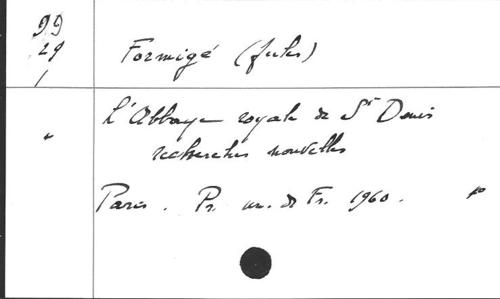 99
29
1
Formigé (Jules)
"
L'Abbaye royale de St Denis
recherches nouvelles
Paris. Pr. un. de Fr. 1960.